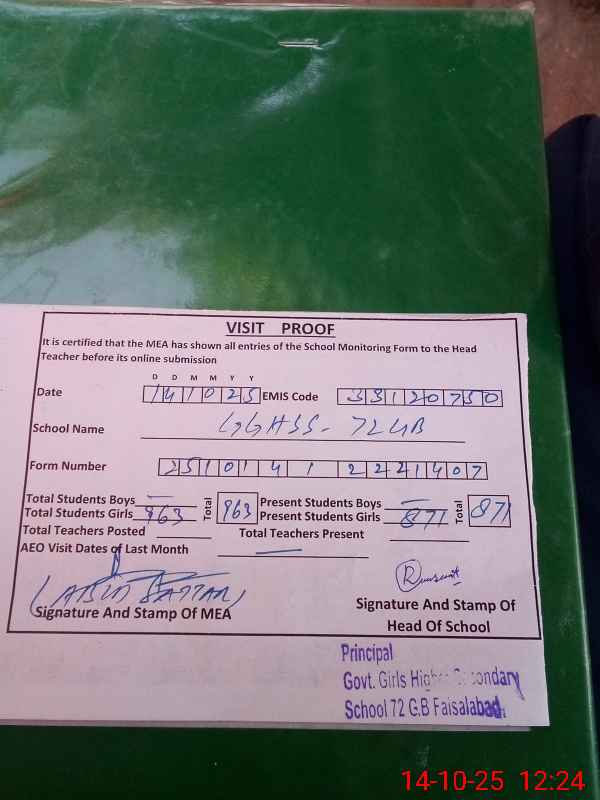 VISIT PROOF
It is certified that the MEA has shown all entries of the School Monitoring Form to the Head
Teacher before its online submission
D D M M Y Y
Date 141025 EMIS Code 33120750
School Name GGHSS- 72 GB
Form Number
Total Students Boys — Total 963 Present Students Boys — Total 871
Total Students Girls 963 Present Students Girls 871
Total Teachers Posted Total Teachers Present
AEO Visit Dates of Last Month —
Signature And Stamp Of MEA
Signature And Stamp Of
Head Of School
Principal
Govt. Girls Higher Secondary
School 72 G.B Faisalabad
14-10-25 12:24